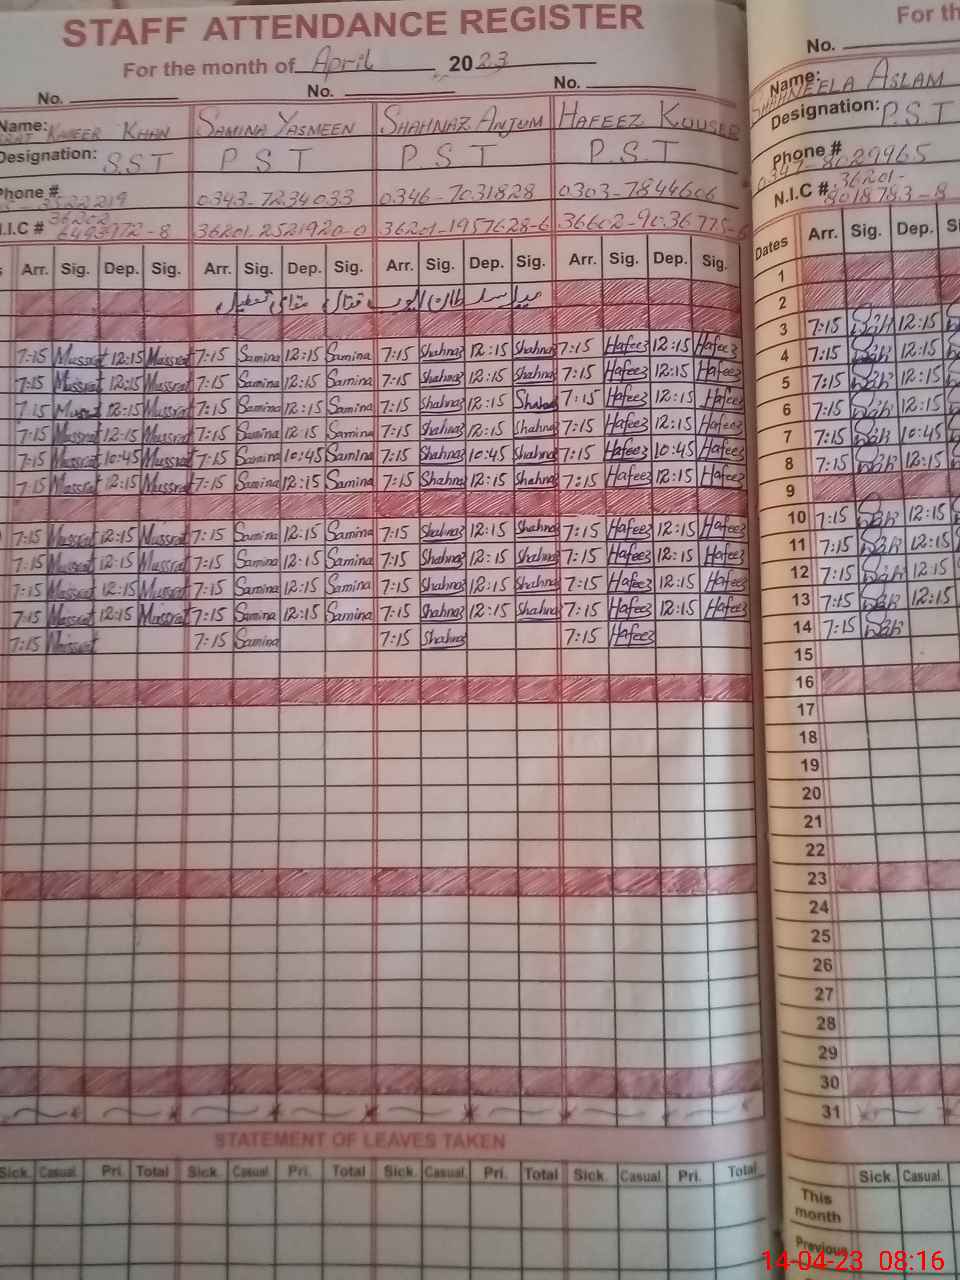 STAFF ATTENDANCE REGISTER
For the month of April 2023
No. No. No.
Name: KHAN SAMINA YASMEEN SHAHNAZ ANJUM HAFEEZ
Designation: S.S.T P S T P S T P.S.T
Phone # 0343-7234033 0346-7031828 0303-7844606
N.I.C # 36201-2521920-0 36201-1957628-6
Arr. Sig. Dep. Sig. Arr. Sig. Dep. Sig. Arr. Sig. Dep. Sig. Arr. Sig. Dep. Sig.
7:15 Mussrat 12:15 Mussrat 7:15 Samina 12:15 Samina 7:15 Shahnaz 12:15 Shahnaz 7:15 Hafeez 12:15 Hafeez
7:15 Mussrat 12:15 Mussrat 7:15 Samina 12:15 Samina 7:15 Shahnaz 12:15 Shahnaz 7:15 Hafeez 12:15 Hafeez
7:15 Mussrat 12:15 Mussrat 7:15 Samina 12:15 Samina 7:15 Shahnaz 12:15 Shahnaz 7:15 Hafeez 12:15 Hafeez
7:15 Mussrat 12:15 Mussrat 7:15 Samina 12:15 Samina 7:15 Shahnaz 12:15 Shahnaz 7:15 Hafeez 12:15 Hafeez
7:15 Mussrat 10:45 Mussrat 7:15 Samina 10:45 Samina 7:15 Shahnaz 10:45 Shahnaz 7:15 Hafeez 10:45 Hafeez
7:15 Mussrat 12:15 Mussrat 7:15 Samina 12:15 Samina 7:15 Shahnaz 12:15 Shahnaz 7:15 Hafeez 12:15 Hafeez
7:15 Mussrat 12:15 Mussrat 7:15 Samina 12:15 Samina 7:15 Shahnaz 12:15 Shahnaz 7:15 Hafeez 12:15 Hafeez
7:15 Mussrat 12:15 Mussrat 7:15 Samina 12:15 Samina 7:15 Shahnaz 12:15 Shahnaz 7:15 Hafeez 12:15 Hafeez
7:15 Mussrat 12:15 Mussrat 7:15 Samina 12:15 Samina 7:15 Shahnaz 12:15 Shahnaz 7:15 Hafeez 12:15 Hafeez
7:15 Mussrat 12:15 Mussrat 7:15 Samina 12:15 Samina 7:15 Shahnaz 12:15 Shahnaz 7:15 Hafeez 12:15 Hafeez
7:15 Mussrat 7:15 Samina 7:15 Shahnaz 7:15 Hafeez
STATEMENT OF LEAVES TAKEN
Sick. Casual. Pri. Total Sick. Casual. Pri. Total Sick. Casual. Pri. Total Sick. Casual. Pri. Total
For th
No.
Name: SHAHNEELA ASLAM
Designation: P.S.T
Phone # 0347-8029965
N.I.C # 36201-
8018783-8
Dates Arr. Sig. Dep. Si
1
2
3 7:15 12:15
4 7:15 12:15
5 7:15 12:15
6 7:15 12:15
7 7:15 10:45
8 7:15 12:15
9
10 7:15 12:15
11 7:15 12:15
12 7:15 12:15
13 7:15 12:15
14 7:15
15
16
17
18
19
20
21
22
23
24
25
26
27
28
29
30
31
Sick. Casual.
This month
Previous
14-04-23 08:16